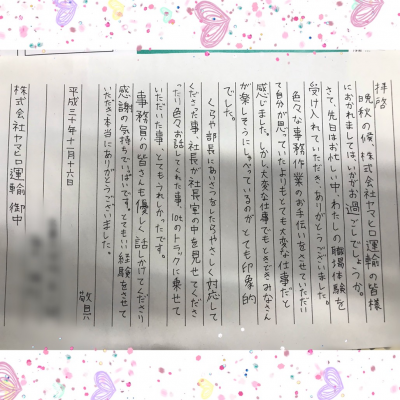 拝啓
晩秋の候、株式会社ヤマヒロ運輸の皆様
におかれましてはいかがお過ごしでしょうか。
さて、先日はお忙しい中、わたしの職場体験を
受け入れていただき、ありがとうございました。
色々な事務作業のお手伝いをさせていただい
て自分が思っていたよりもとても大変な仕事だと
感じました。しかし大変な仕事でもときどきみなさん
が楽しそうにしゃべっているのがとても印象的
でした。
くらや部長にあいさつをしたらやさしく対応して
くださった事、社長が社長室の中を見せてくださ
ったり色々お話してくれた事、10tのトラックに乗せて
いただいた事、とてもうれしかったです。
事務員の皆さんも優しく話しかけてくださり
感謝の気持ちでいっぱいです。とてもいい経験をさせて
いただき本当にありがとうございました。
敬具
平成三十年十一月十六日
株式会社ヤマヒロ運輸 御中